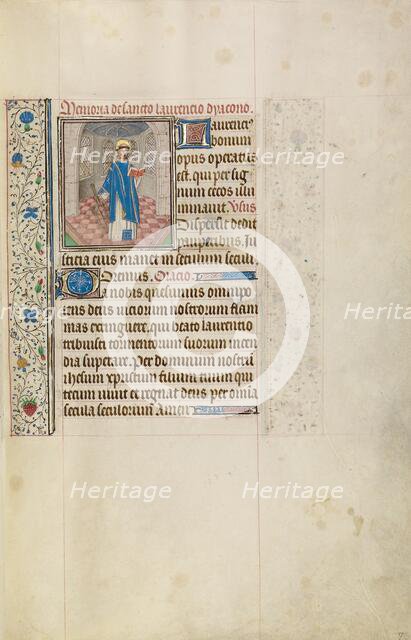 Memoria de sancto laurencio dyacono.
Laurenci⁹
bonum
opus operat⁹
est. qui per sig
num crucis cecos illu
minavit. Vsus
Dispersit dedit
pauperibus. Ju
sticia eius manet in seculum seculi
Oremus. Oracio.
Da nobis quesumus omnipo
tens deus viciorum nostrorum flam
mas extinguere. qui beato laurencio
tribuisti tormentorum suorum incen
dia superare. Per dominum nostrum
ihesum xpristum filium tuum qui
tecum vivit et regnat deus per omnia
secula seculorum amen
Heritage Heritage
Heritage
Heritage Heritage